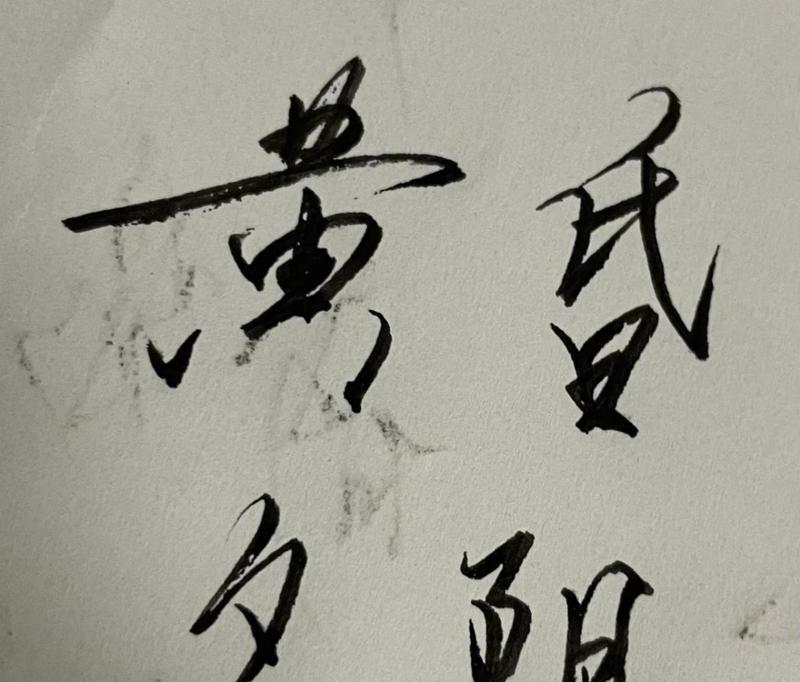 黄昏
夕阳